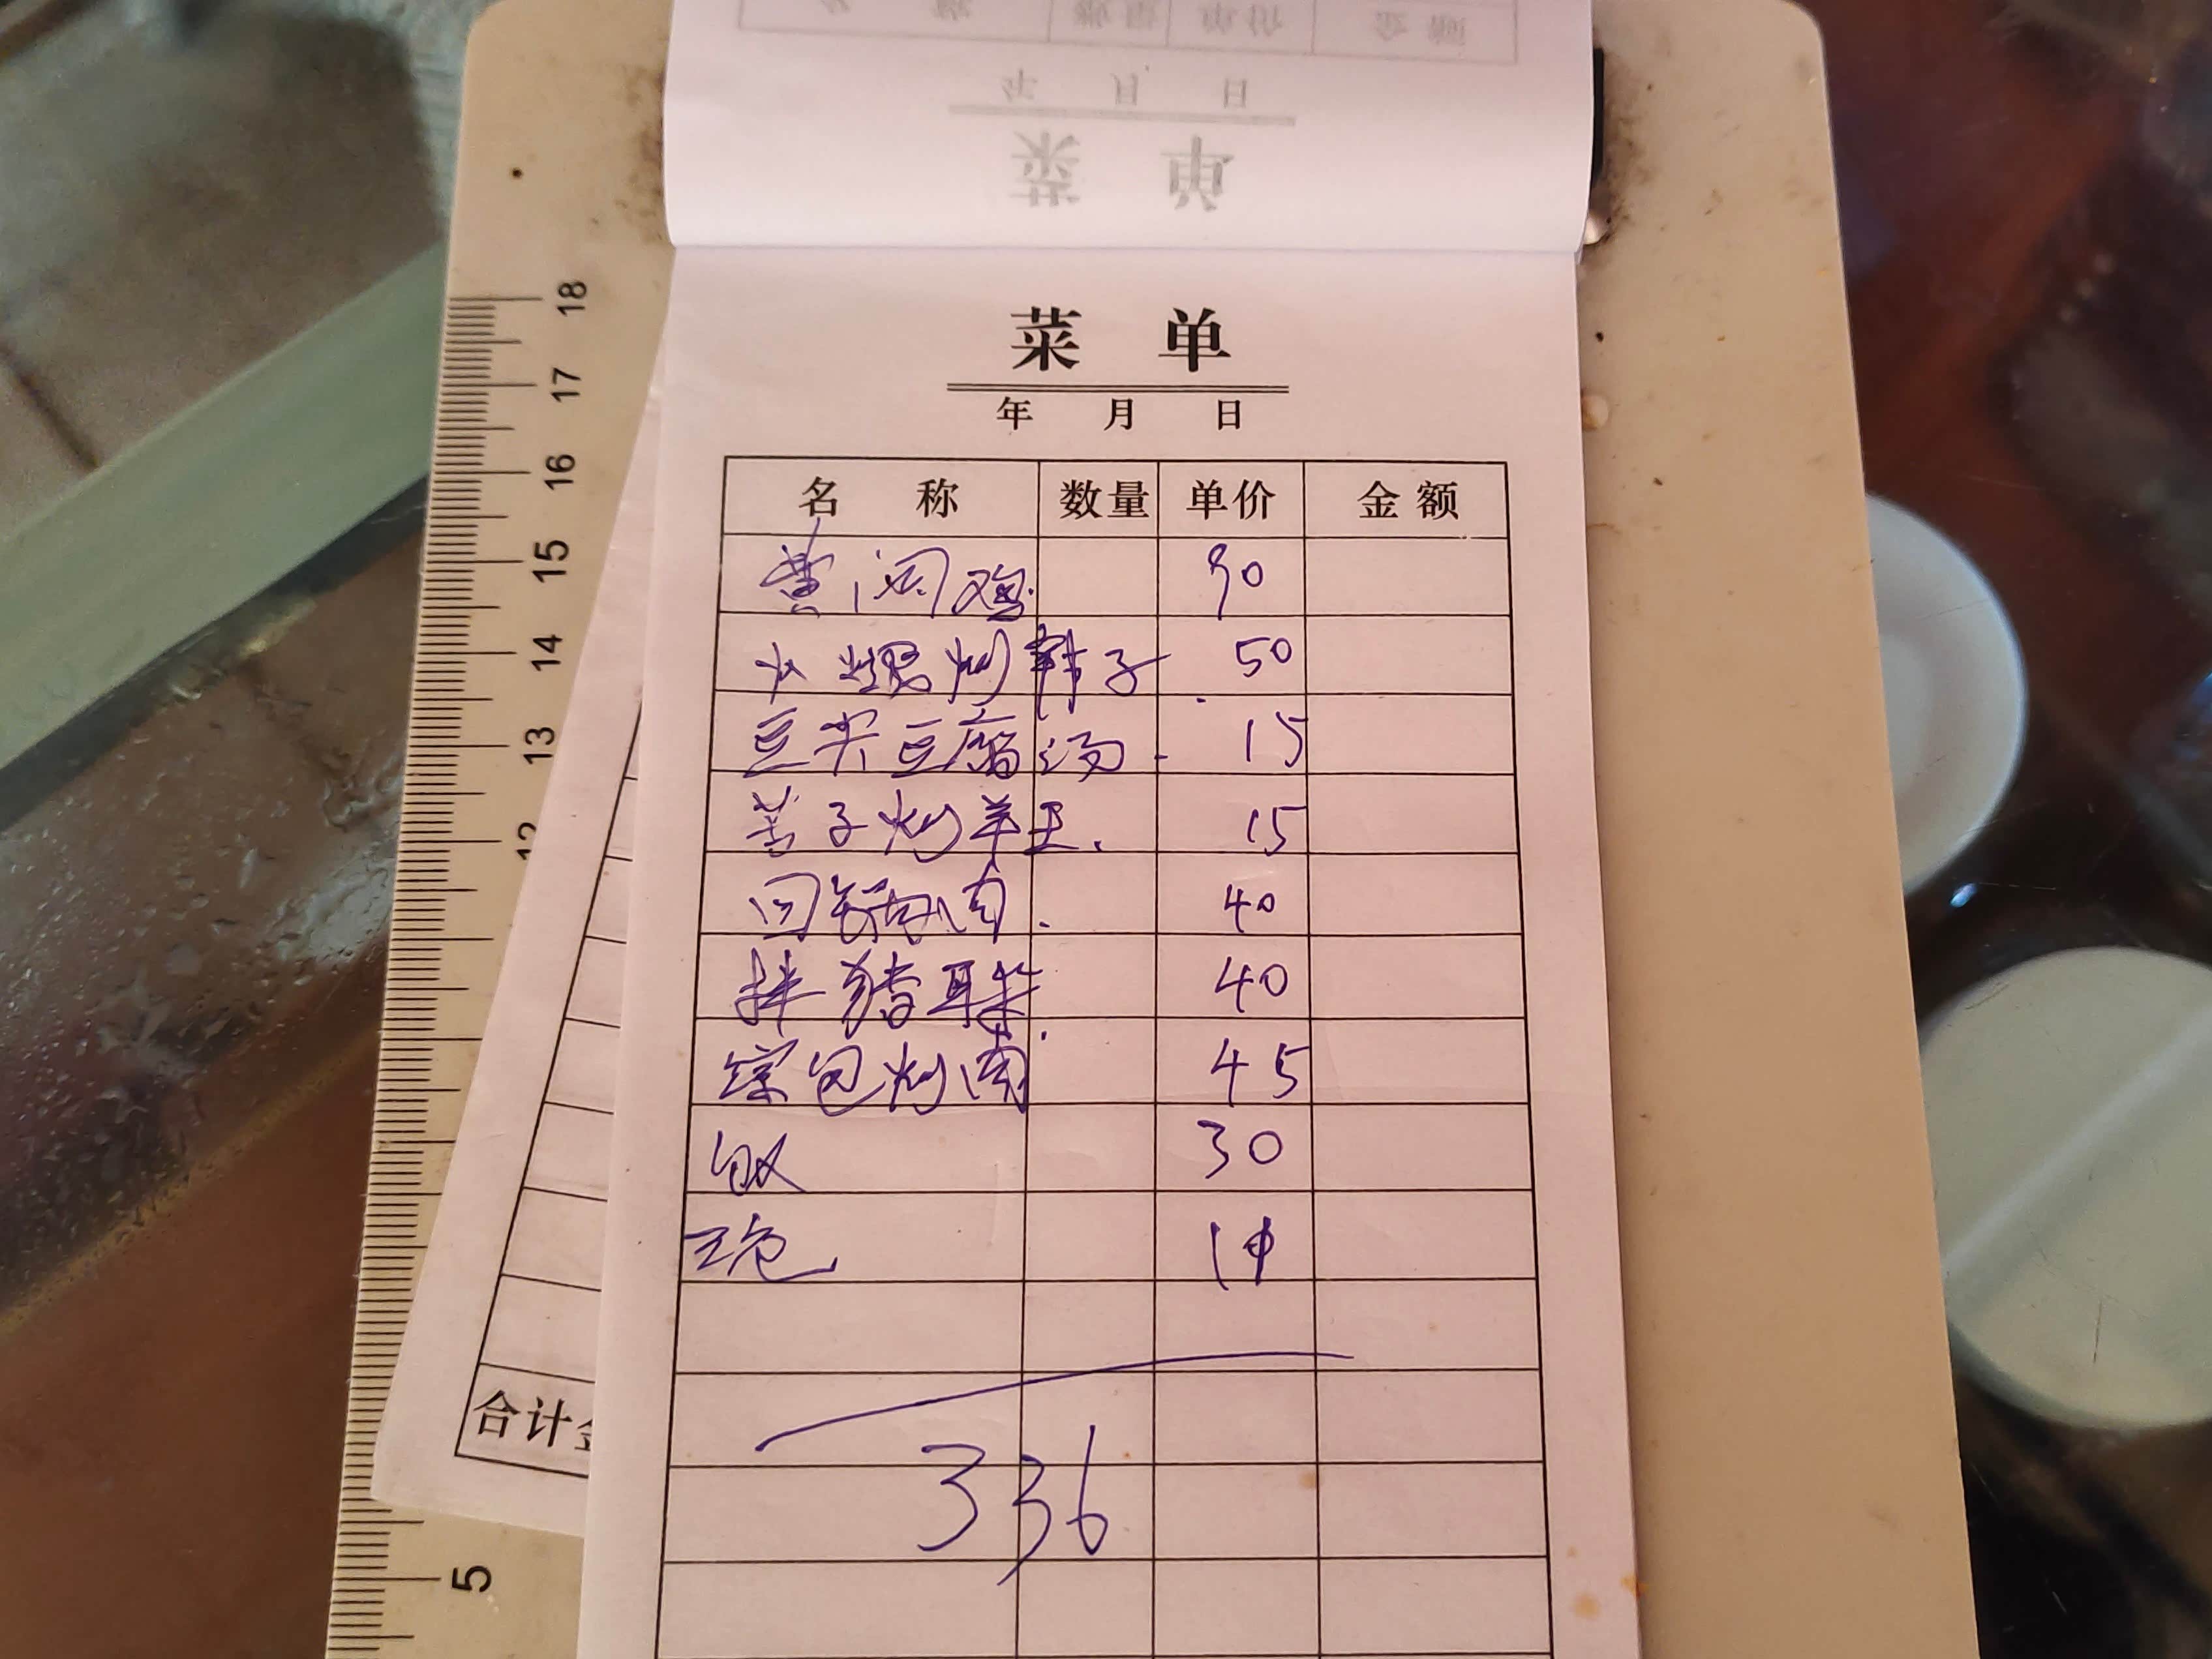 菜 单
年 月 日
名 称 数量 单价 金额
黄闷鸡 90
小螺炒韩子 50
豆尖豆腐汤 15
苦子炒羊王 15
回锅肉 40
拌猪耳朵 40
综包炒肉 45
饭 30
336
合计
18
17
16
15
14
13
12
5